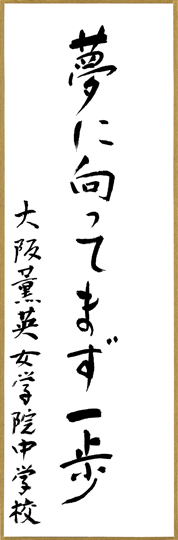 夢に向ってまず一歩
大阪薫英女学院中学校